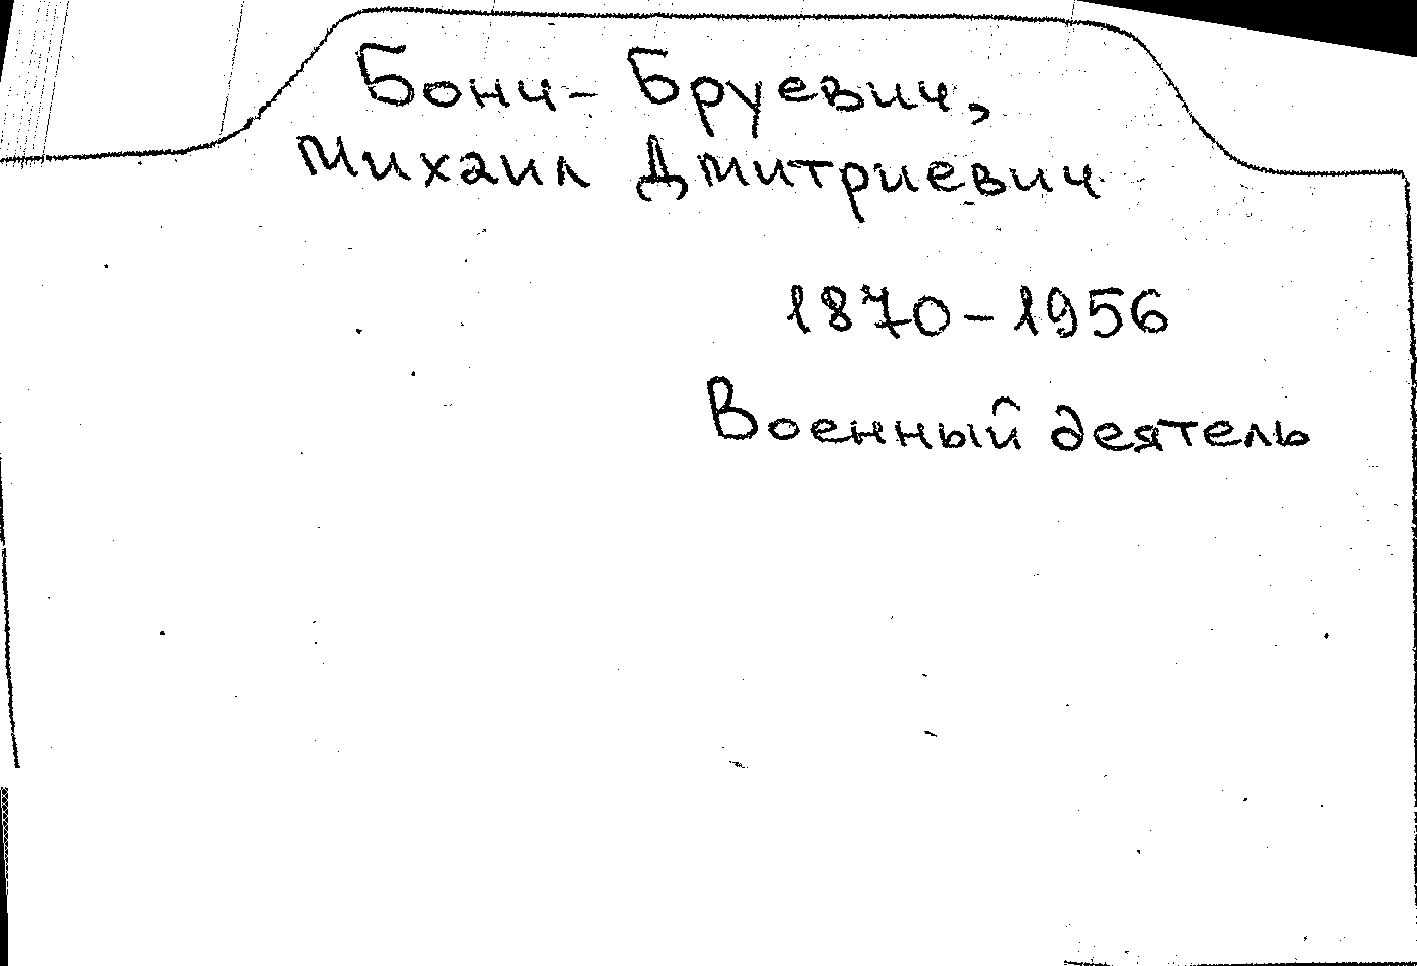 Бонч-Бруевич,
Михаил Дмитриевич
1870-1956
Военный деятель